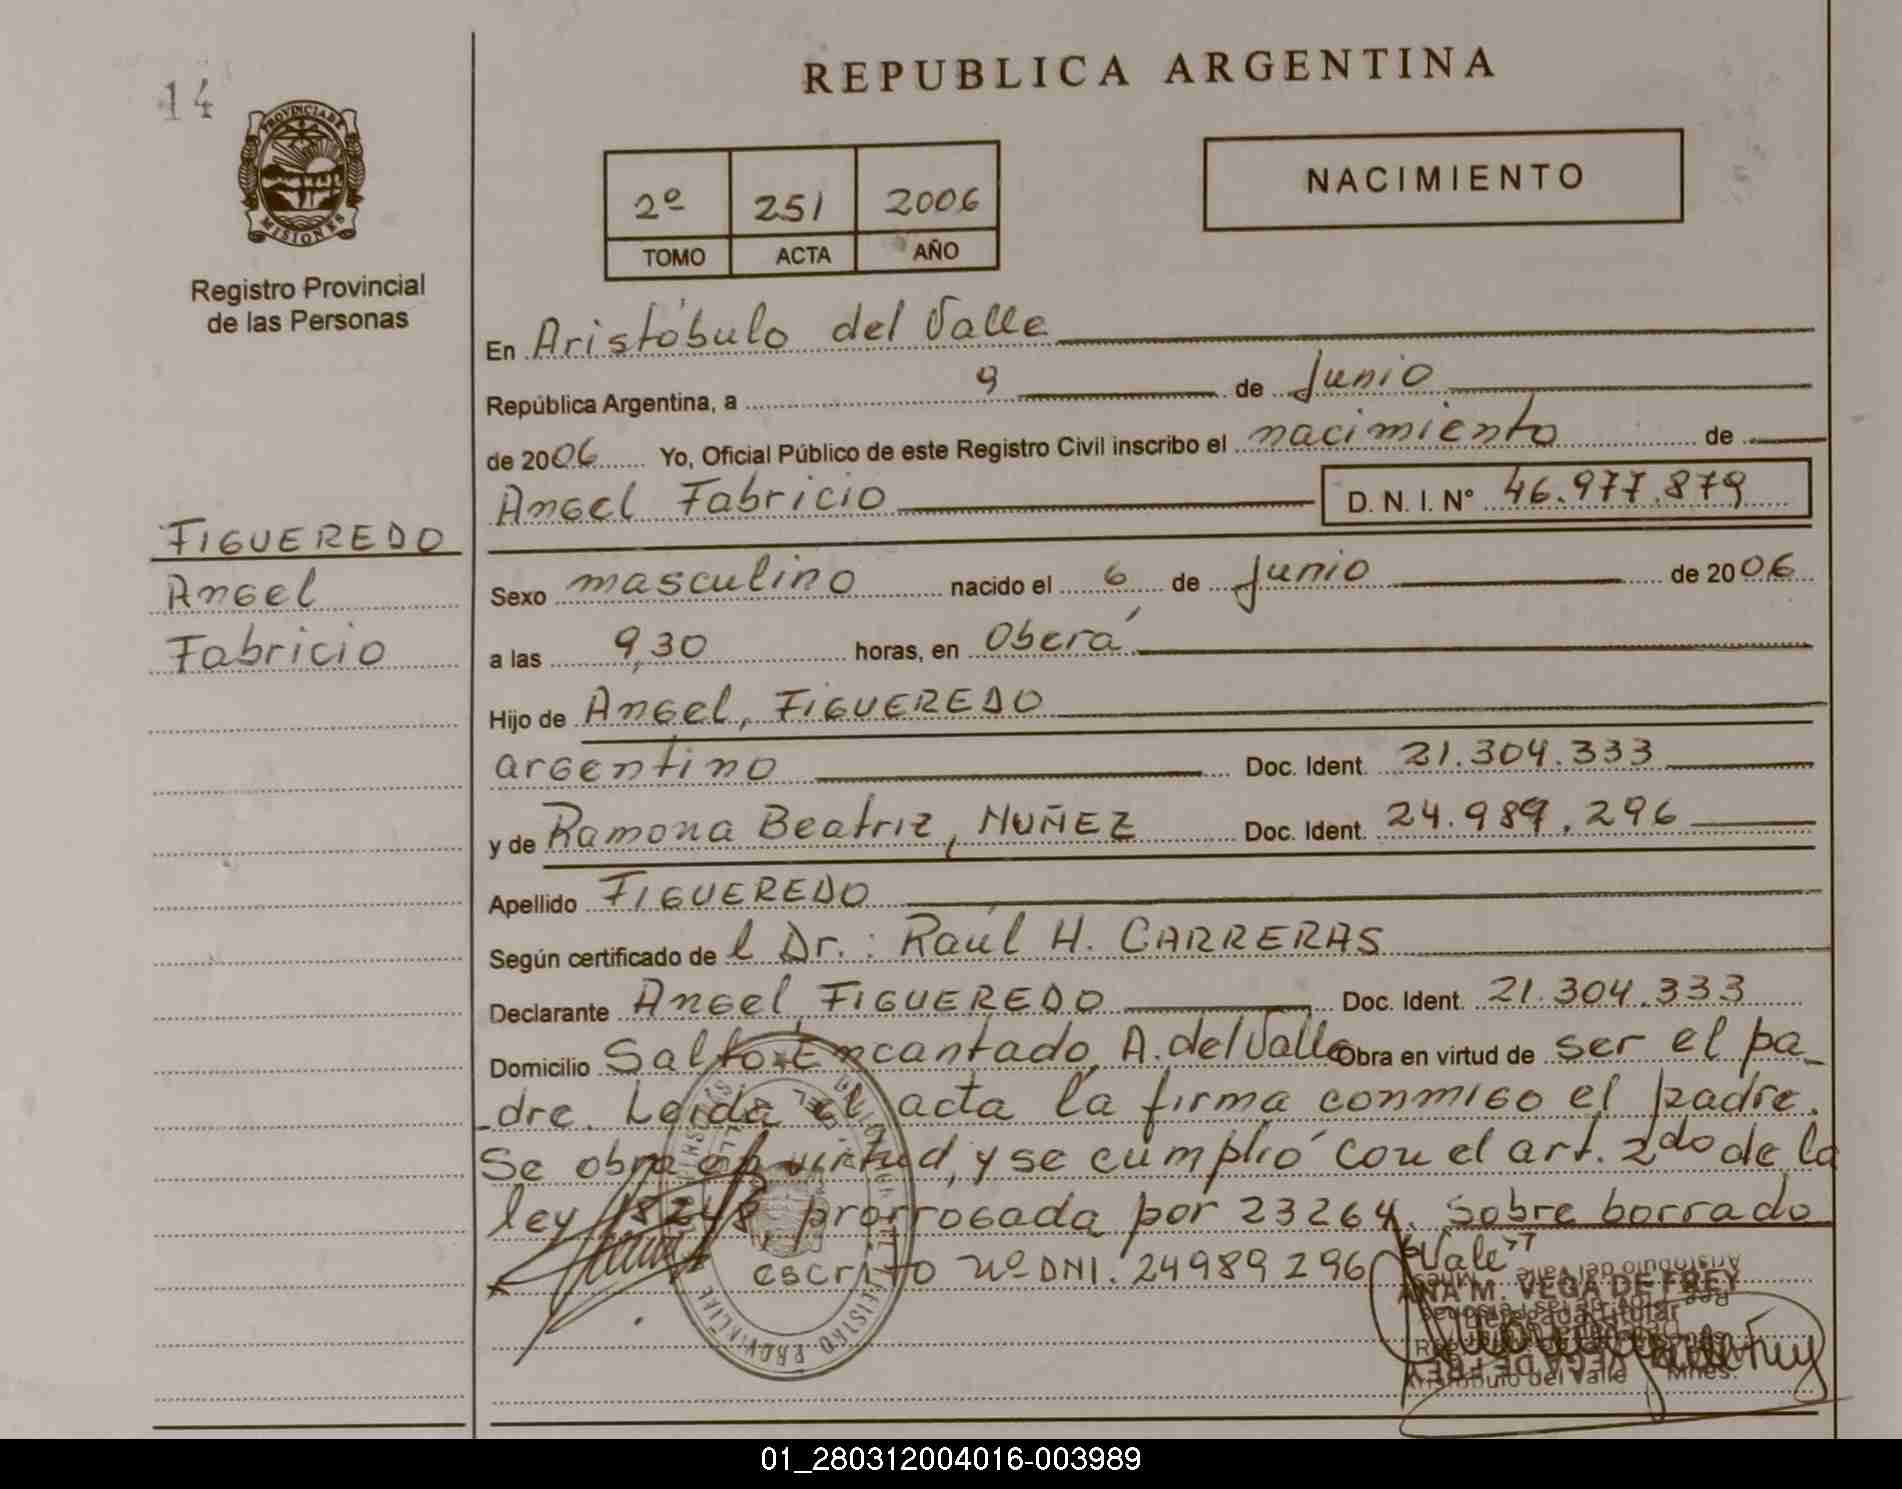 14
PROVINCIA DE
MISIONES
Registro Provincial
de las Personas
REPUBLICA ARGENTINA
2º 251 2006
TOMO ACTA AÑO
NACIMIENTO
En Aristóbulo del Valle
República Argentina, a 9 de Junio
de 2006 Yo, Oficial Público de este Registro Civil inscribo el nacimiento de
Angel Fabricio D. N. I. Nº 46.977.879
FIGUEREDO
Angel
Fabricio
Sexo masculino nacido el 6 de Junio de 2006
a las 9,30 horas, en Oberá
Hijo de Angel, FIGUEREDO
argentino Doc. Ident. 21.304.333
y de Ramona Beatriz, NUÑEZ Doc. Ident. 24.989.296
Apellido FIGUEREDO
Según certificado de l Dr.: Raúl H. CARRERAS
Declarante Angel, FIGUEREDO Doc. Ident. 21.304.333
Domicilio Salto Encantado, A. del Valle Obra en virtud de ser el pa_
_dre. Leida el acta la firma conmigo el padre.
Se obra en virtud, y se cumplió con el art. 2do de la
ley 18248, prorrogada por 23264. Sobre borrado
escrito Nº DNI. 24989296 "Vale"
ANA M. VEGA DE FREY
Delegada Titular
Aristóbulo del Valle Mnes.
REGISTRO PROVINCIAL
01_280312004016-003989